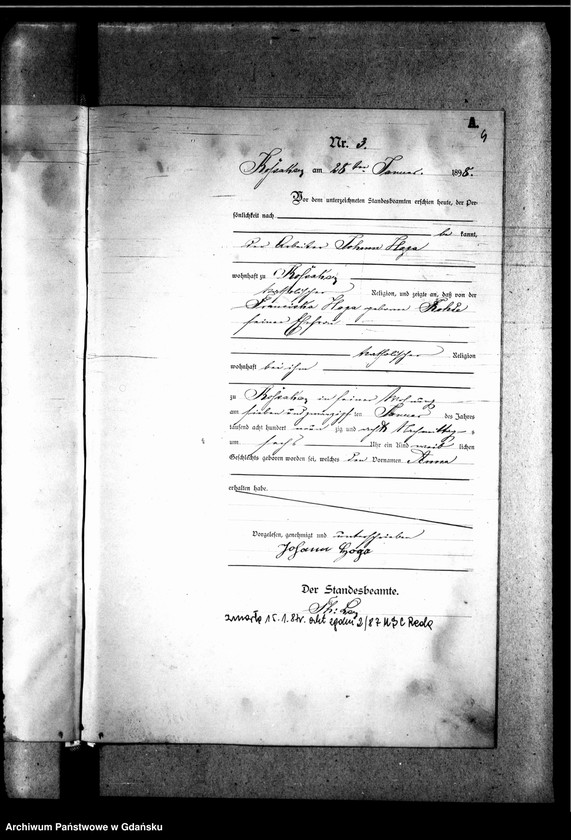 A.
Nr. 3.
am 28 ten Januar 1898.
Vor dem unterzeichneten Standesbeamten erschien heute, der Per-
sönlichkeit nach
be kannt,
der Arbeiter Johann
wohnhaft zu
katholischer Religion, und zeigte an, daß von der
Franciska geborene
seiner Ehefrau
katholischer Religion
wohnhaft bei ihm
zu in seiner Wohnung
am sieben und zwanzigsten Januar des Jahres
tausend acht hundert neun zig und acht Nachmittags
um sechs Uhr ein Kind weib lichen
Geschlechts geboren worden sei, welches den Vornamen Anna
erhalten habe.
Vorgelesen, genehmigt und unterschrieben
Johann
Der Standesbeamte.
zmarła 15.1.87r. akt zgonu 2/87 USC Reda
Archiwum Państwowe w Gdańsku